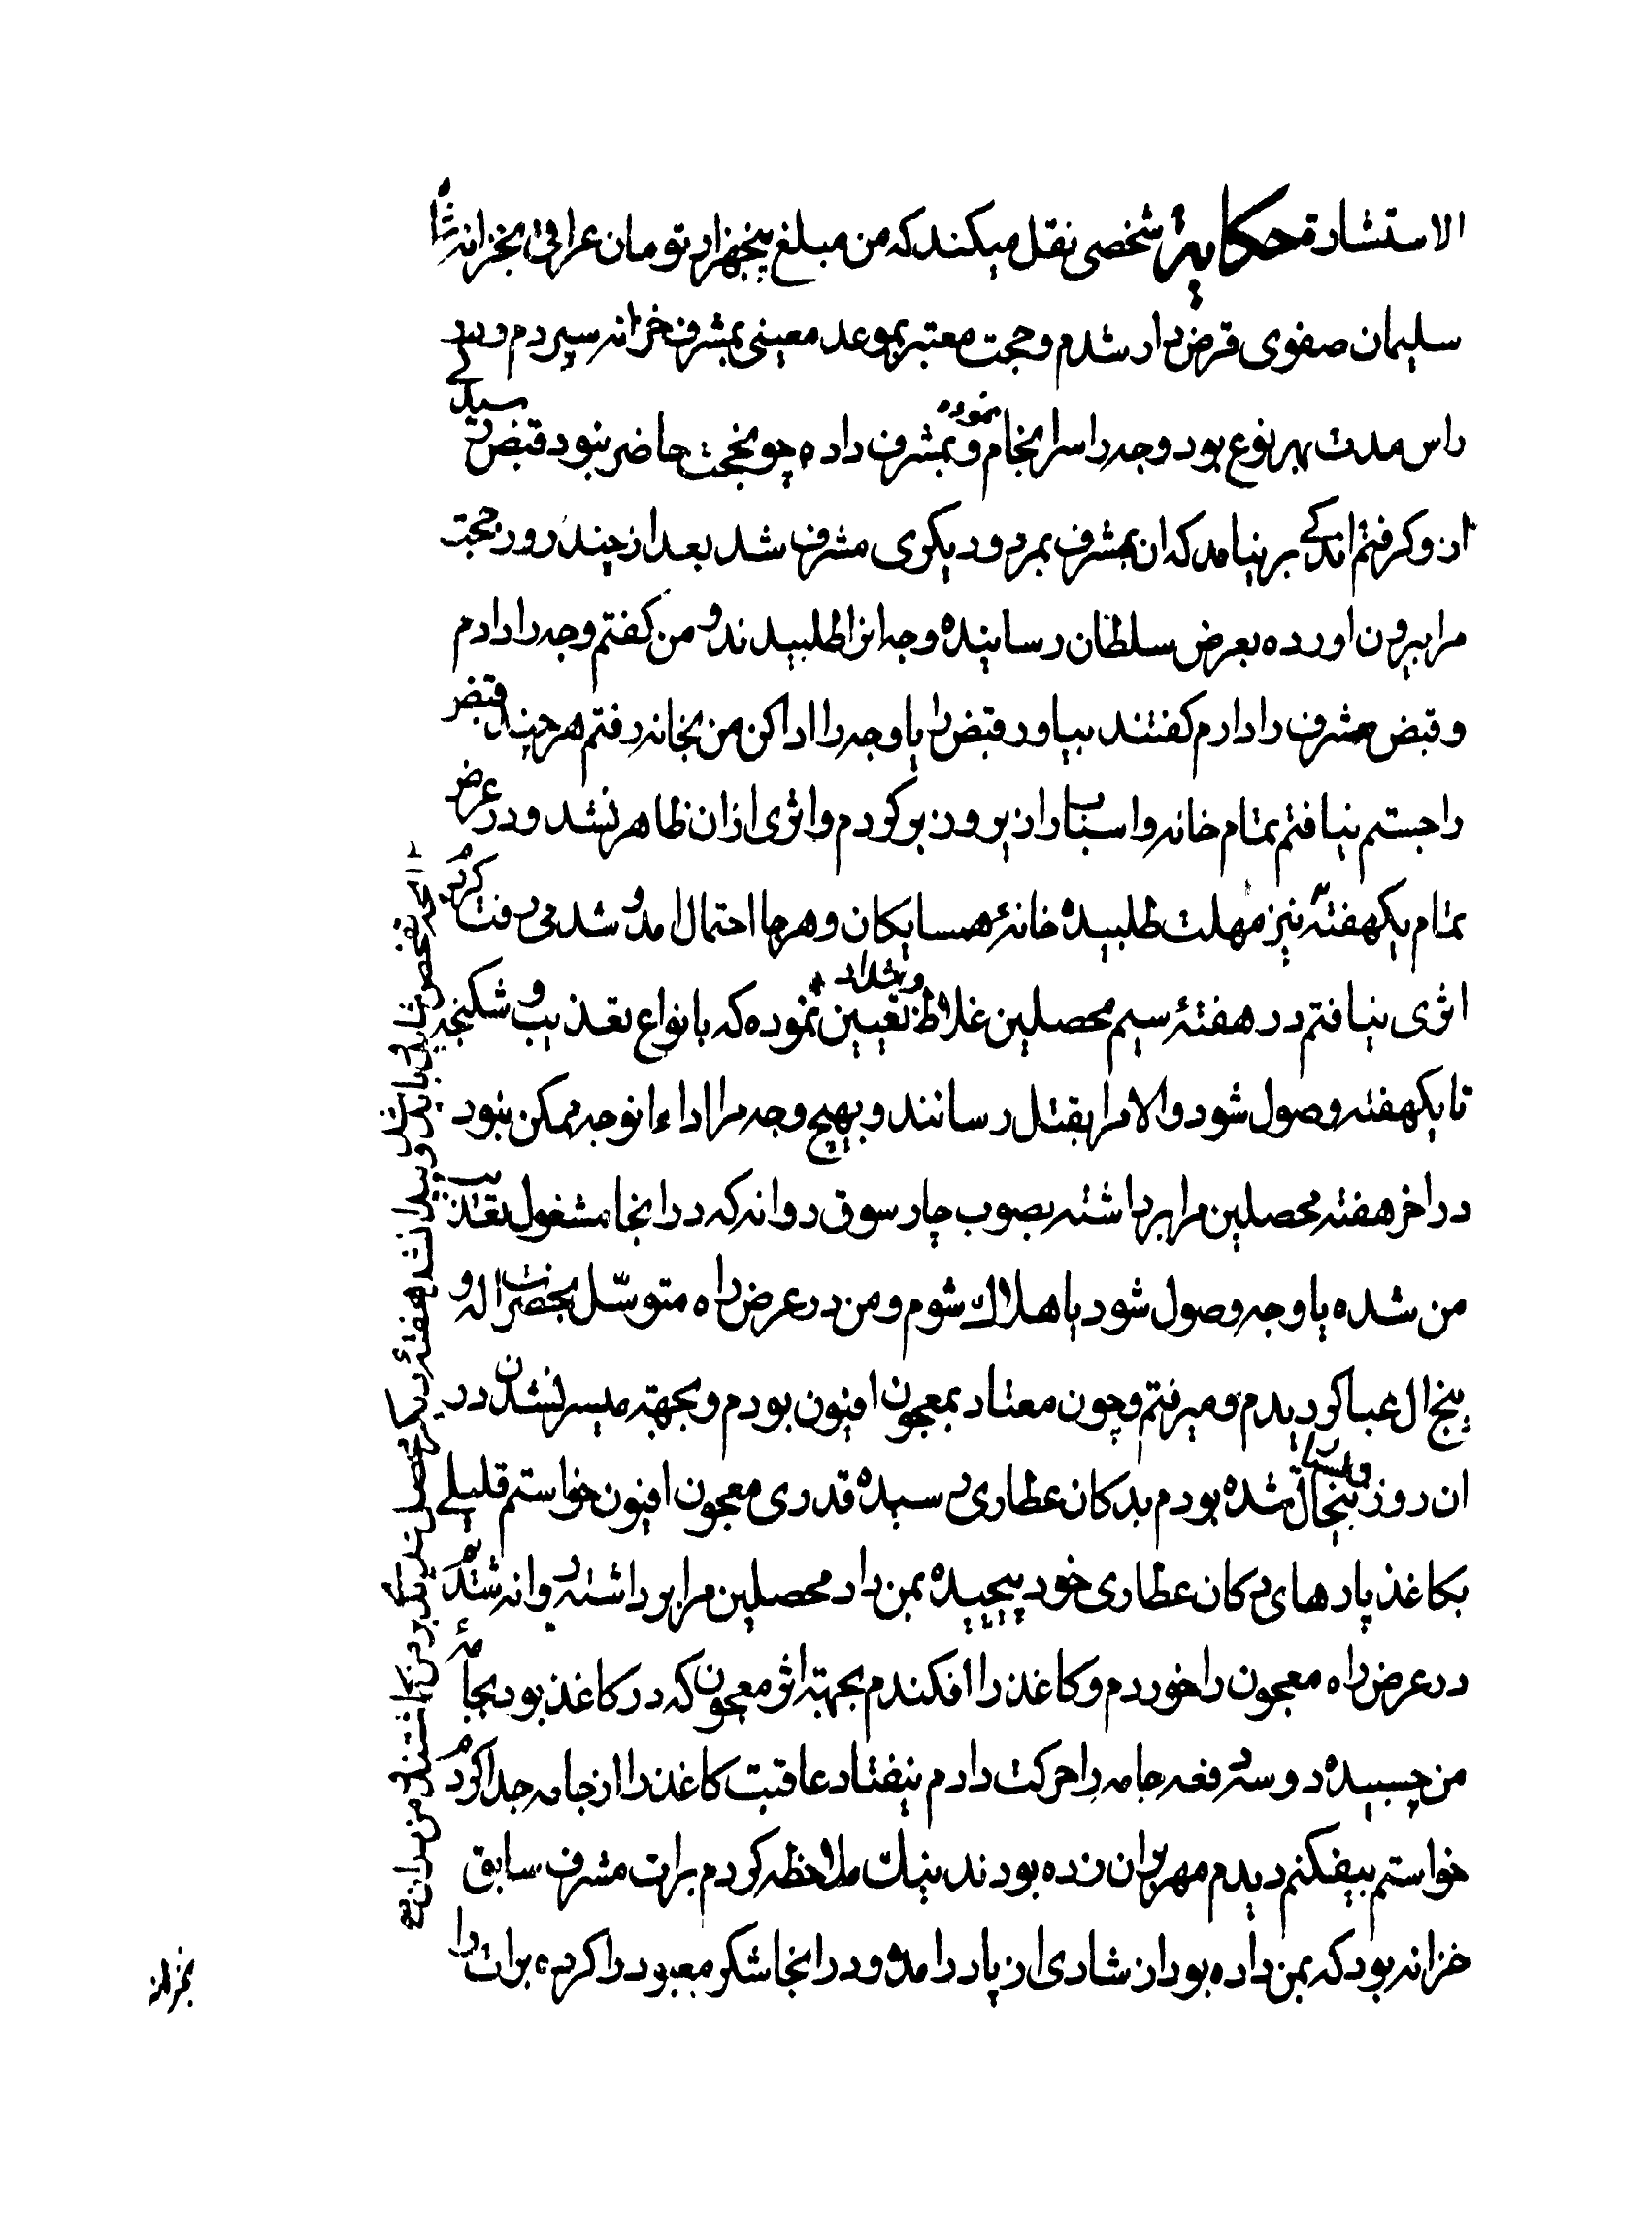 الاستشارة حکایة شخصی نقل میکند که من مبلغ پنجهزار تومان عراقی بخزانه شاه
سلیمان صفوی قرض دار شدم و حجت معتبر بموعد معینی بمشرف خزانه سپردم و بر
راس مدت بهر نوع بود وجه را سرانجام نموده و بمشرف داده چو نحجت حاضر نبود قبض
از و کرفتم اندکی برنیامد که ان مشرف بمرد و دیکری مشرف شد بعد از چند روز حجت
مرا بیرون اورده بعرض سلطان رسانیده وجه انرا طلبیدند و من کفتم وجه را دادم
و قبض مشرف را دارم کفتند بیاور قبض را یا وجه را ادا کن من بخانه رفتم هر چند قبض
را جستم نیافتم تمام خانه و اسباب را زیر و زبر کردم و اثری از ان ظاهر نشد و در عرض
تمام یکهفتهٔ نیز مهلت طلبیده خانهٔ همسایکان و هر جا احتمال امد و شد می رفت کردیدم
اثری نیافتم در هفتهٔ سیم محصلین غلاظ و شداد تعیین نموده که بانواع تعذیب و شکنجه
تا یکهفته وصول شود والا مرا بقتل رسانند و بهیچ وجه مرا اداء انوجه ممکن نبود
در اخر هفته محصلین مرا برداشته بصوب چار سوق روانه که در انجا مشغول تعذیب
من شده یا وجه وصول شود یا هلاک شوم و من در عرض راه متوسّل بحضرت اله و
پنج ال عبا کردیدم و میرفتم و چون معتاد بمعجون افیون بودم و بجهة میسر نشدن در
ان روز بیحال شده بودم بدکان عطاری رسیده قدری معجون افیون خواستم قلیلی
بکاغذ پارهای دکان عطاری خود پیچیده بمن داد محصلین مرا برداشته روانه شدند
در عرض راه معجون را خوردم و کاغذ را افکندم بجهة اثر معجون که در کاغذ بود بجامهٔ
من چسبیده دو سه دفعه جامه را حرکت دادم نیفتاد عاقبت کاغذ را از جامه جدا کردم
خواستم بیفکنم دیدم مهر بران زده بودند نیک ملاحظه کردم برات مشرف سابق
خزانه بود که بمن داده بود از شادی از پا در امدم و در انجا شکر معبود را کرده برات را
بخزانه